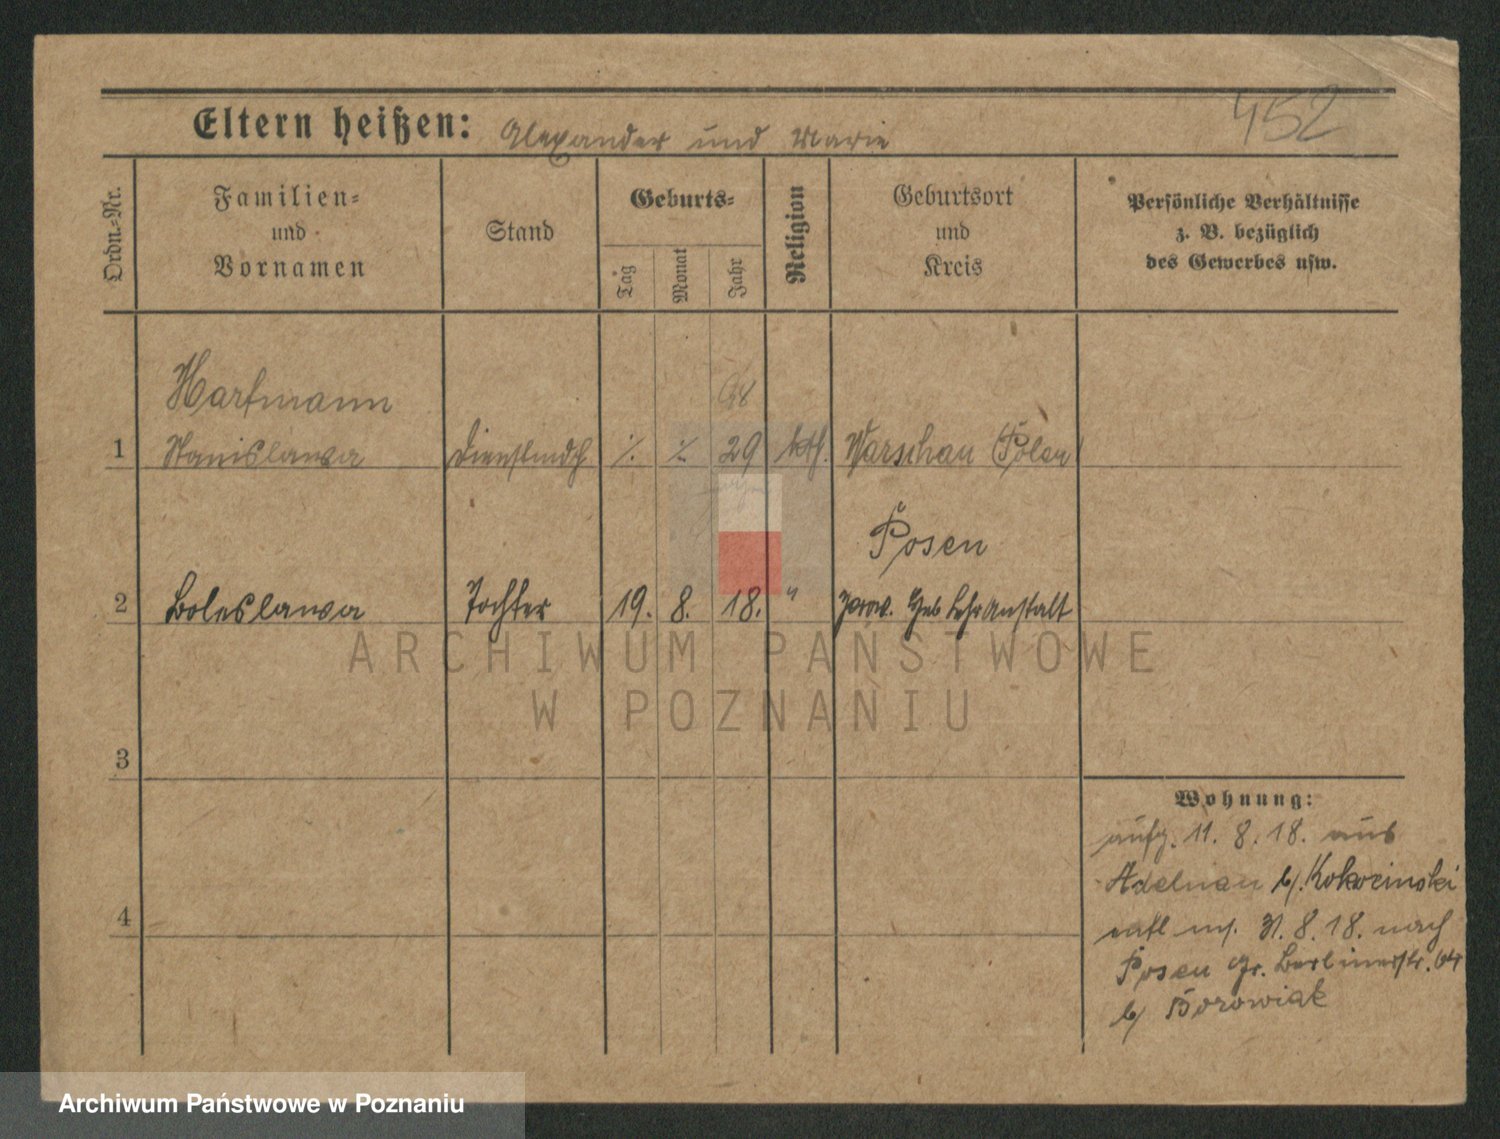 452
Eltern heißen: Alexander und Marie
Ordn.-Nr.
Familien-
und
Vornamen
Stand
Geburts-
Tag
Monat
Jahr
Religion
Geburtsort
und
Kreis
Persönliche Verhältnisse
z. B. bezüglich
des Gewerbes usw.
Hartmann
98
1 Stanislawa Dienstmdch ./. ./. 29 kth. Warschau (Polen)
Posen
2 Boleslawa Tochter 19. 8. 18. " Prov. Heb. Lehr Anstalt
3
4
Wohnung:
aufg. 11. 8. 18. aus
Adelnau b/. Kokocinski
31. 8. 18. nach
Posen Gr. Berlinerstr.
b/ Borowiak
ARCHIWUM PAŃSTWOWE
W POZNANIU
Archiwum Państwowe w Poznaniu